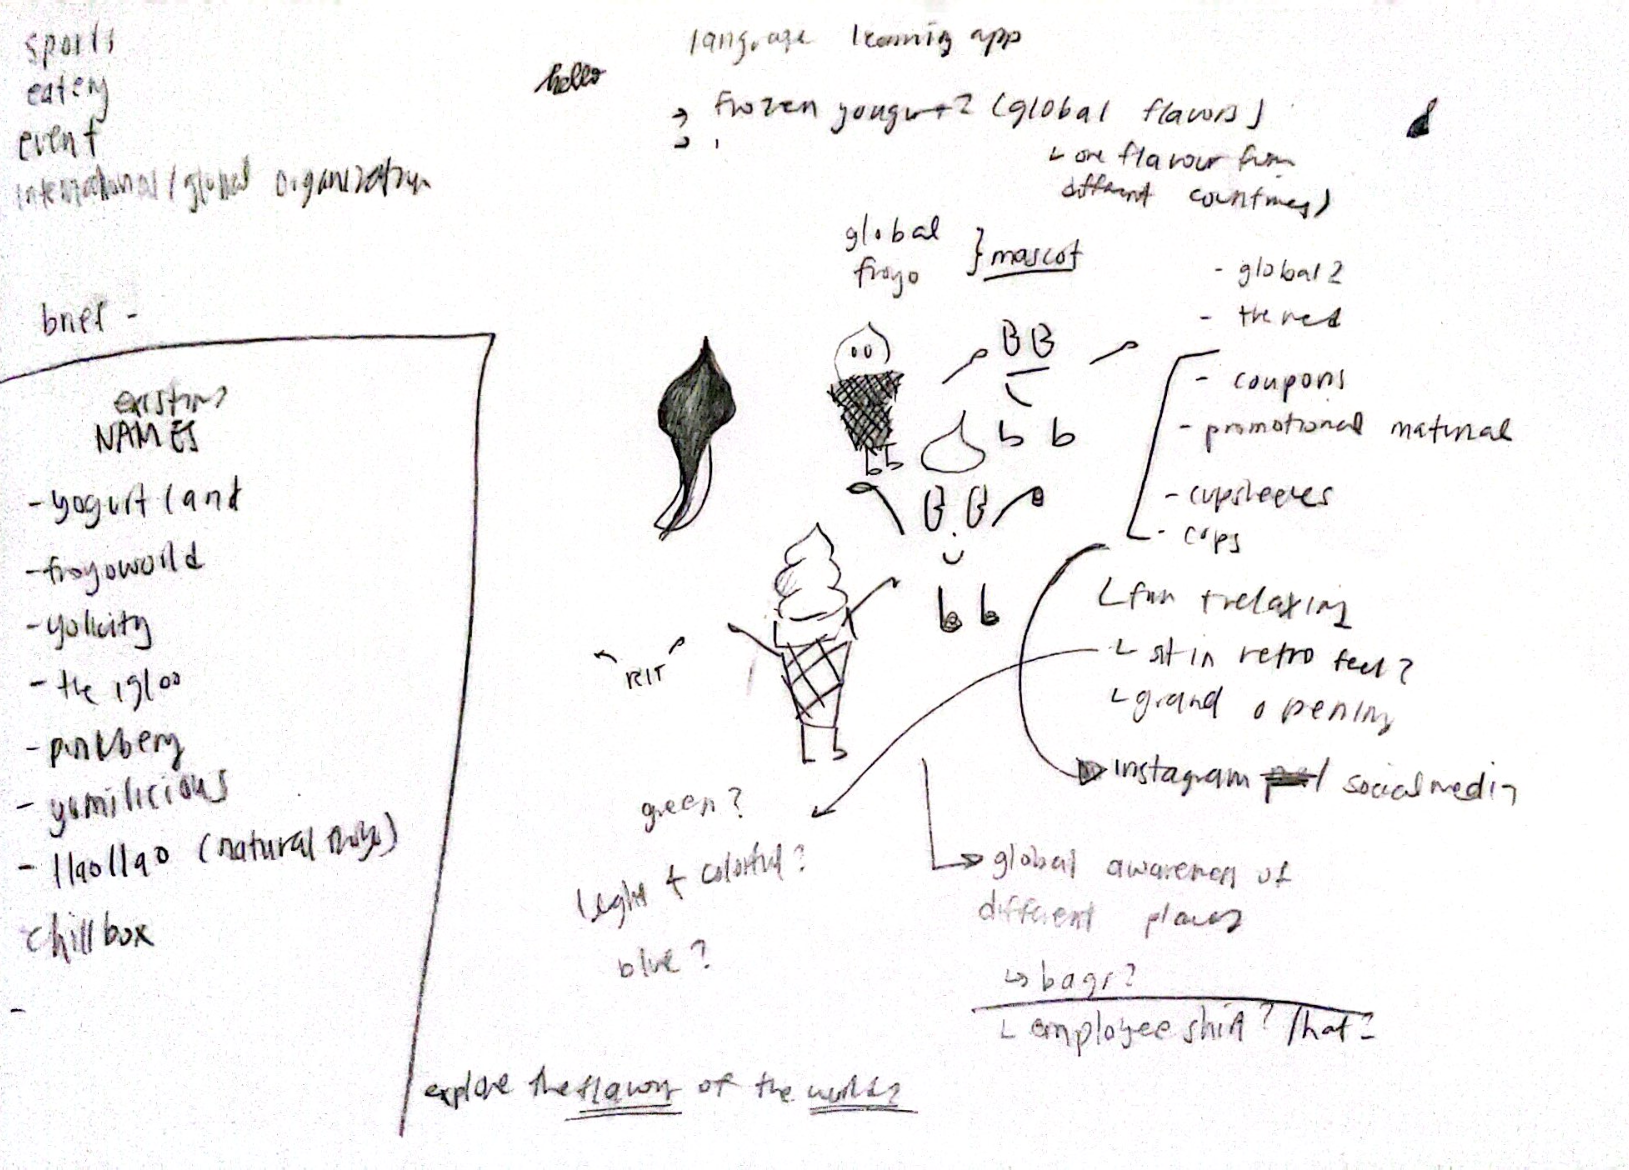 sports
eatery
event
international/global organization
brief -
existing
NAMES
- yogurtland
- froyoworld
- yolicity
- the igloo
- pinkberry
- yumilicious
- llaollao (natural froyo)
chillbox
-
hello
language learning app
→ frozen yougurt? (global flavors)
↳ one flavour from
different countries)
global
froyo } mascot
- global?
- themed
- coupons
- promotional material
- cupsleeves
- cups
↳ fun + relaxing
↳ sit in retro feel?
↳ grand opening
→ instagram / social media
RIT
green?
light + colorful?
blue?
→ global awareness of
different places
↳ bags?
↳ employee shirt? / hat?
explore the flavors of the world?